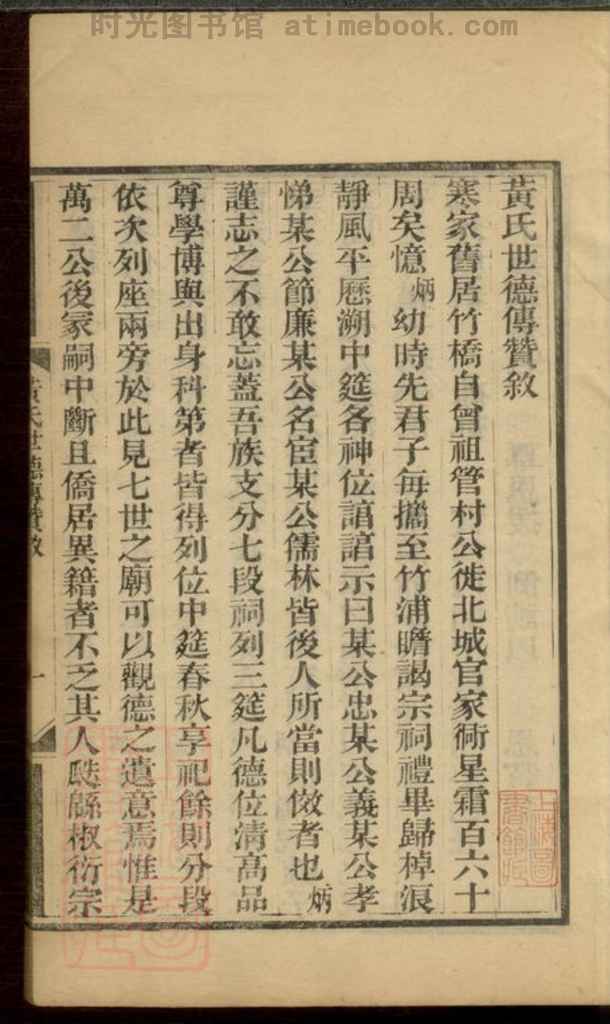 时光图书馆 atimebook.com
黃氏世德傳贊敘
寒家舊居竹橋自曾祖管村公徙北城官家衖星霜百六十
周矣憶炳幼時先君子每攜至竹浦瞻謁宗祠禮畢歸棹浪
靜風平歷溯中筵各神位諳諳示曰某公忠某公義某公孝
悌某公節廉某公名宦某公儒林皆後人所當則傚者也炳
謹志之不敢忘蓋吾族支分七段祠列三筵凡德位清高品
尊學博與出身科第者皆得列位中筵春秋享祀餘則分段
依次列座兩旁於此見七世之廟可以觀德之遺意焉惟是
萬二公後冢嗣中斷且僑居異籍者不乏其人瓞緜椒衍宗
黃氏世德傳贊敘
一
上海圖書館藏